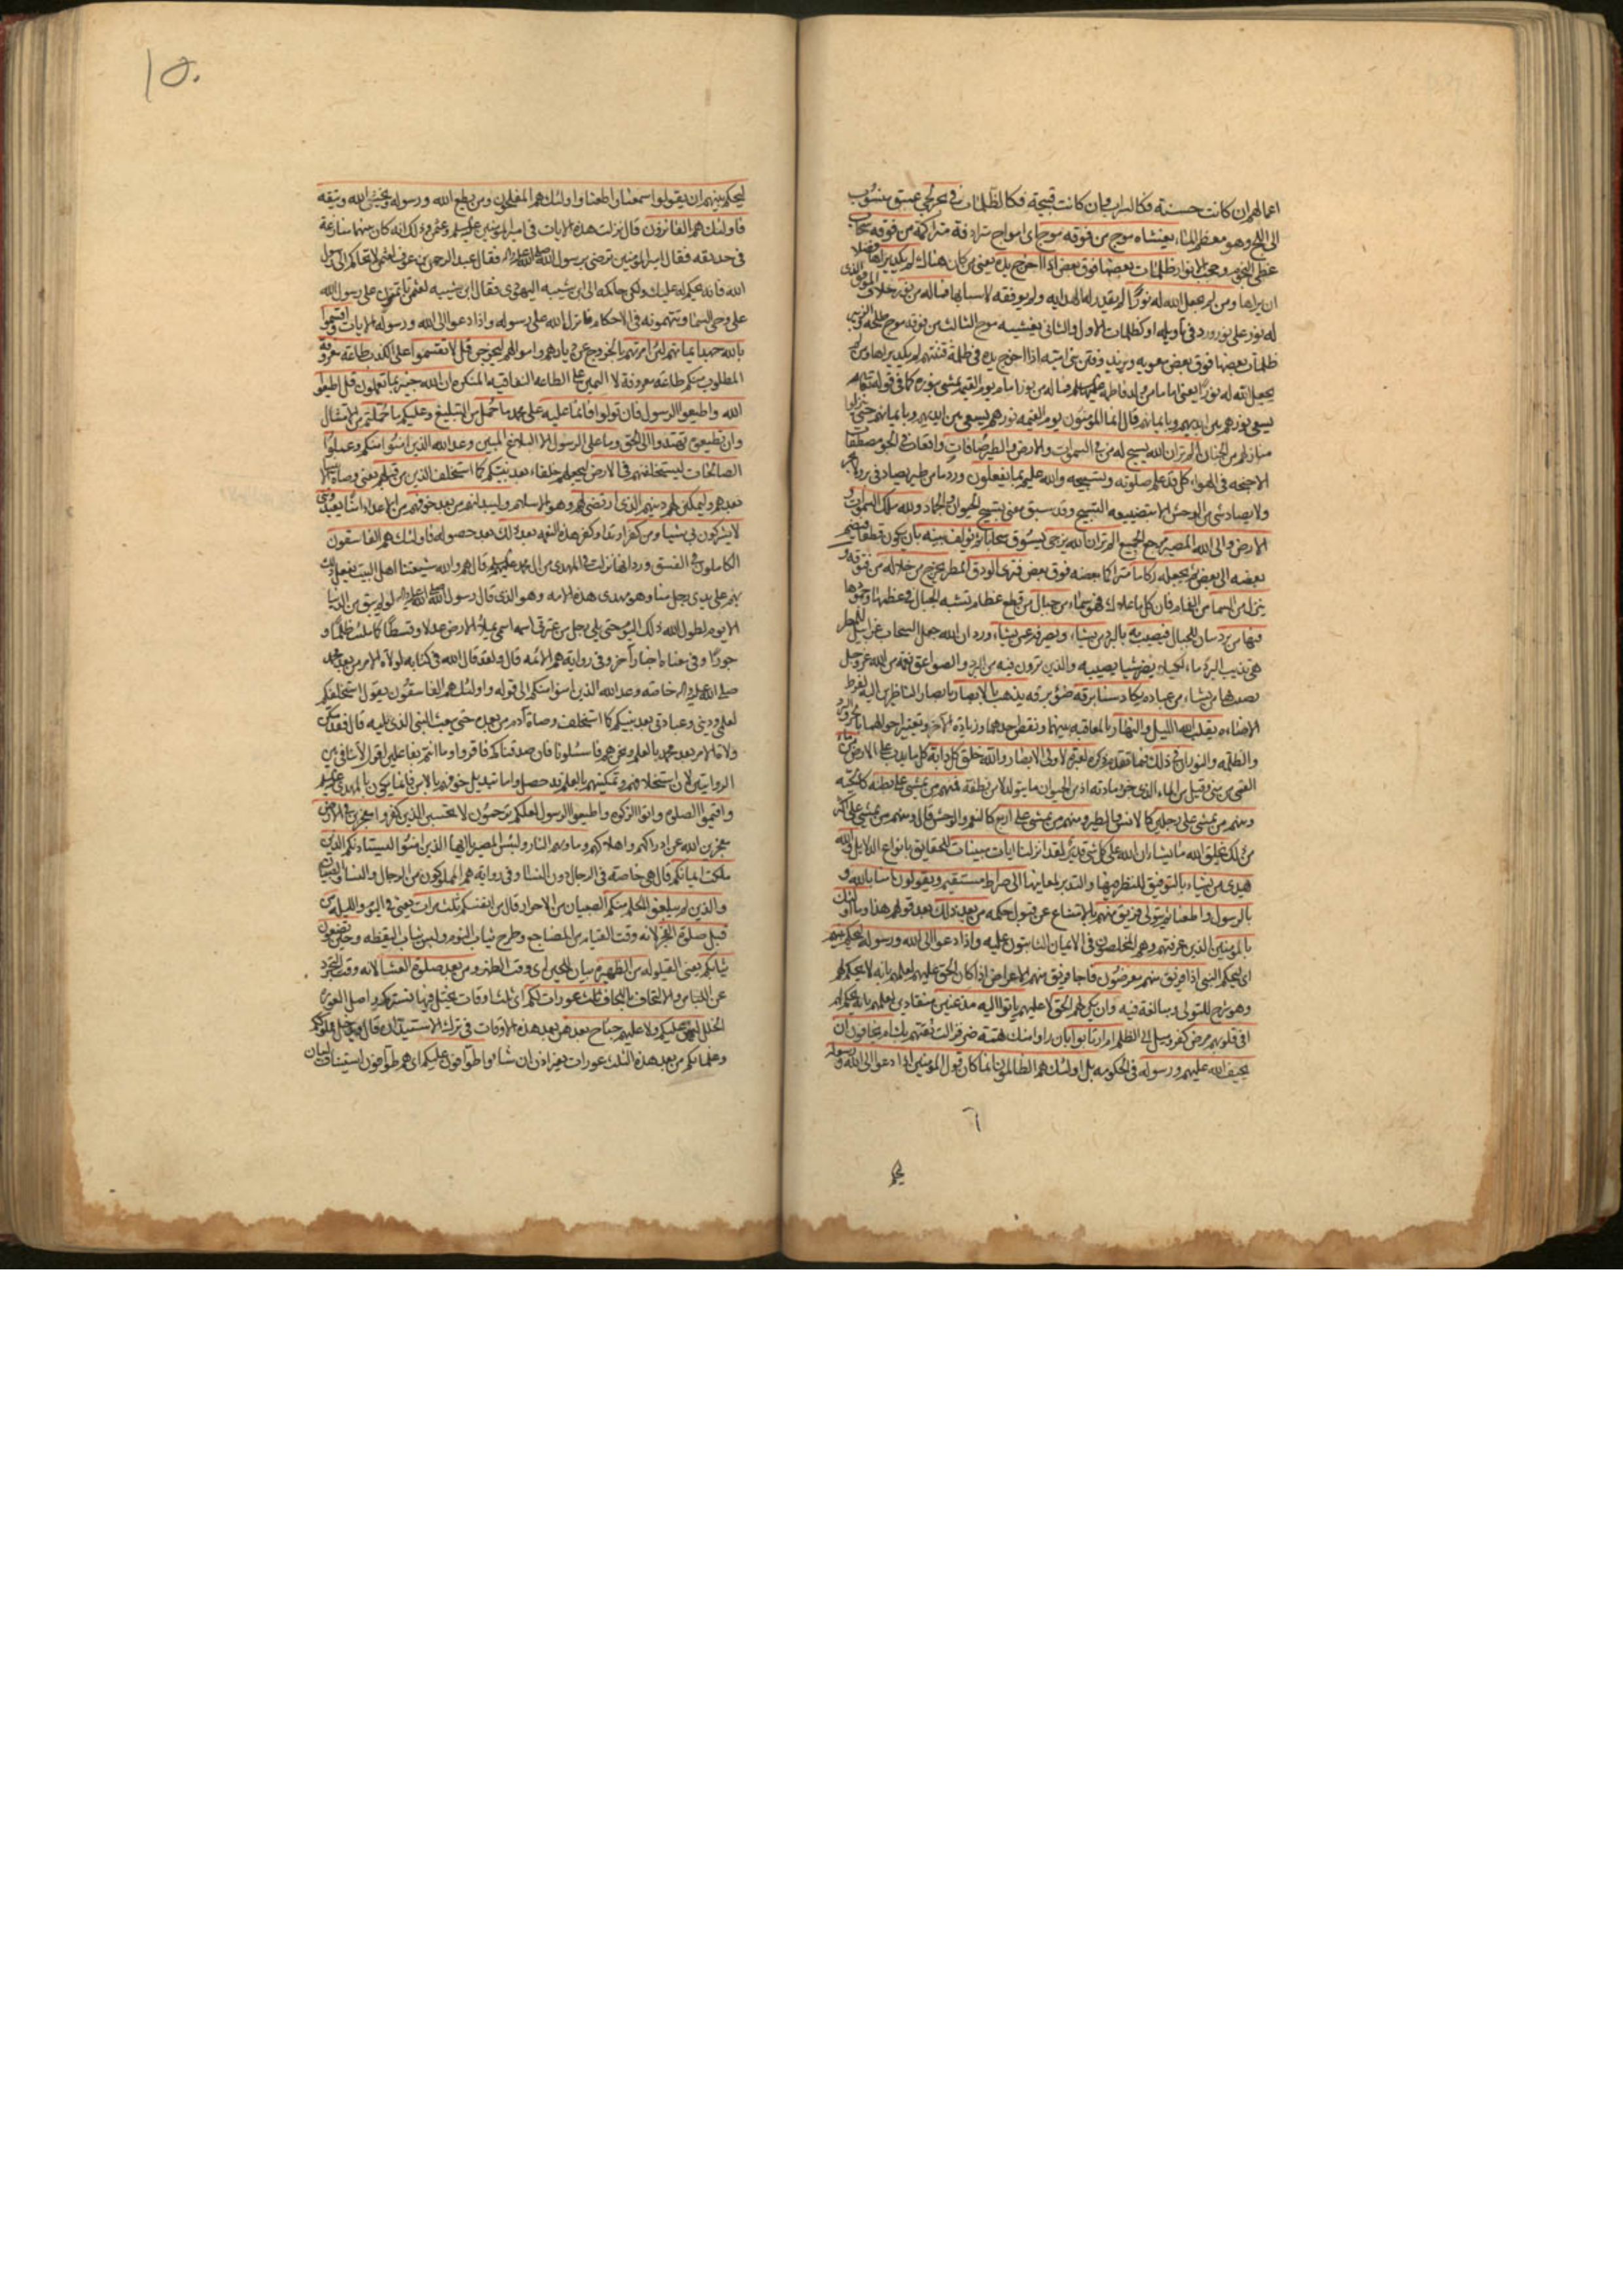 اعمالهم ان كانت حسنة فكالسراب وان كانت قبيحة فكالظلمات في بحر لجي عميق منسوب
الى اللج وهو معظم الماء يغشاه موج من فوقه موج اى امواج مترادفة متراكمة من فوقه سحاب
غطى النجوم وحجب انوارها ظلمات بعضها فوق بعض اذا اخرج يده يعنى من كان هناك لم يكد يراها فضلا
ان يراها ومن لم يجعل الله له نورا لم يقدر له الهداية ولم يوفقه لاسبابها فما له من نور خلاف الموفق الذى
له نور على نور ورد فى تأويله او كظلمات الاول والثانى يغشيه موج الثالث من فوقه موج طلحة والزبير
ظلمات بعضها فوق بعض معوية ويزيد وفتن بنى امية اذا اخرج يده فى ظلمة فتنتهم لم يكد يراها ومن لم
يجعل الله له نورا يعنى اماما من ولد فاطمة عليها السلام فما له من نور امام يوم القيمة يمشى بنوره كما فى قوله تعالى
يسعى نورهم بين ايديهم وبايمانهم قال انما المؤمنون يوم القيمة نورهم يسعى بين ايديهم وبايمانهم حتى ينزلوا
منازلهم من الجنان الم تر ان الله يسبح له من فى السموات والارض والطير صافات واقفات فى الجو مصطفات
الاجنحة فى الهواء كل قد علم صلوته وتسبيحه والله عليم بما يفعلون ورد ما من طير يصاد فى بر ولا بحر
ولا يصاد شئ من الوحش الا بتضييعه التسبيح وقد سبق معنى تسبيح الحيوان والجماد ولله ملك السموات و
الارض والى الله المصير مرجع الجميع الم تر ان الله يزجى يسوق سحابا ثم يؤلف بينه بان يكون قطعا فيضم
بعضه الى بعض ثم يجعله ركاما متراكما بعضه فوق بعض فترى الودق المطر يخرج من خلاله من فتوقه و
ينزل من السماء من الغمام فان كل ما علاك فهو سماء من جبال من قطع عظام تشبه الجبال فى عظمها وجمودها
فيها من برد بيان للجبال فيصيب به بالبرد من يشاء ويصرفه عن من يشاء ورد ان الله جعل السحاب غرابيل للمطر
هى تذيب البرد ماء لكيلا يضر شيئا يصيبه والذى ترون فيه من البرد والصواعق نقمة من الله عز وجل
يصيب بها من يشاء من عباده يكاد سنا برقه ضوء برقه يذهب بالابصار بابصار الناظرين اليه لفرط
الاضاءة يقلب الله الليل والنهار بالمعاقبة بينهما ونقص احدهما وزيادة الاخر وتغيير احوالهما بالحر والبرد
والظلمة والنور ان فى ذلك فيما تقدم ذكره لعبرة لاولى الابصار والله خلق كل دابة كل ما يدب على الارض من ماء
القمى من منى وقيل من الماء الذى جزء مادته اذ من الحيوان ما يتولد لا من نطفة فمنهم من يمشى على بطنه كالحية
ومنهم من يمشى على رجلين كالانس والطير ومنهم من يمشى على اربع كالنعم والوحش قال ومنهم من يمشى على اكثر
من ذلك يخلق الله ما يشاء ان الله على كل شئ قدير لقد انزلنا ايات مبينات للحقايق بانواع الدلايل والله
يهدى من يشاء بالتوفيق للنظر فيها والتدبر لمعانيها الى صراط مستقيم ويقولون امنا بالله و
بالرسول واطعنا ثم يتولى فريق منهم بالامتناع عن قبول حكمه من بعد ذلك بعد قولهم هذا وما اولئك
بالمؤمنين الذين عرفتهم وهم المخلصون فى الايمان الثابتون عليه واذا دعوا الى الله ورسوله ليحكم بينهم
اى ليحكم النبى اذا فريق منهم معرضون فاجا فريق منهم الاعراض اذا كان الحق عليهم لعلمهم بانه لا يحكم لهم
وهو شرح للتولى ومبالغة فيه وان يكن لهم الحق لا عليهم ياتوا اليه مذعنين منقادين لعلمهم بانه يحكم لهم
افى قلوبهم مرض كفر وميل الى الظلم ام ارتابوا بان راوا منك تهمة فزالت ثقتهم بك ام يخافون ان
يحيف الله عليهم ورسوله فى الحكومة بل اولئك هم الظالمون انما كان قول المؤمنين اذا دعوا الى الله ورسوله
١٥٠
ليحكم بينهم ان يقولوا سمعنا واطعنا واولئك هم المفلحون ومن يطع الله ورسوله ويخش الله ويتقه
فاولئك هم الفائزون قال نزلت هذه الايات فى امير المؤمنين عليه السلم وعثمن وذلك انه كان بينهما منازعة
فى حديقة فقال امير المؤمنين ترضى برسول الله صلى الله عليه واله فقال عبد الرحمن بن عوف لعثمن لا تحاكم الى رسول
الله فانه يحكم له عليك ولكن حاكمه الى ابن شيبه اليهودى فقال ابن شيبه لعثمن تأتمنون على رسول الله
على وحى السماء وتتهمونه فى الاحكام فانزل الله على رسوله واذا دعوا الى الله ورسوله الايات واقسموا
بالله جهد ايمانهم لئن امرتهم بالخروج عن ديارهم واموالهم ليخرجن قل لا تقسموا على الكذب طاعة معروفة
المطلوب منكم طاعة معروفة لا اليمين على الطاعة النفاقية المنكرة ان الله خبير بما تعملون قل اطيعوا
الله واطيعوا الرسول فان تولوا فانما عليه على محمد ما حمل من التبليغ وعليكم ما حملتم من الامتثال
وان تطيعوه تهتدوا الى الحق وما على الرسول الا البلاغ المبين وعد الله الذين امنوا منكم وعملوا
الصالحات ليستخلفنهم فى الارض ليجعلهم خلفاء بعد نبيكم كما استخلف الذين من قبلهم يعنى وصاة الانبياء
بعدهم وليمكنن لهم دينهم الذى ارتضى لهم وهو الاسلام وليبدلنهم من بعد خوفهم من الاعداء امنا يعبدوننى
لا يشركون بى شيئا ومن كفر ارتد او كفر هذه النعمة بعد ذلك بعد حصوله فاولئك هم الفاسقون
الكاملون فى الفسق ورد انها نزلت فى المهدى من ال محمد عليهم السلم قال هم والله شيعتنا اهل البيت يفعل ذلك
بهم على يدى رجل منا وهو مهدى هذه الامة وهو الذى قال رسول الله صلى الله عليه واله لو لم يبق من الدنيا
الا يوم لطول الله ذلك اليوم حتى يلى رجل من عترتى اسمه اسمى يملأ الارض عدلا وقسطا كما ملئت ظلما و
جورا وفى معناه اخبار اخر وفى رواية هم الائمة قال ولقد قال الله فى كتابه لولاة الامر من بعد محمد
صلى الله عليه واله خاصة وعد الله الذين امنوا منكم الى قوله واولئك هم الفاسقون يقول استخلفكم
لعلمى ودينى وعبادتى بعد نبيكم كما استخلف وصاة آدم من بعده حتى يبعث النبى الذى يليه قال فقد مكن
ولاة الامر بعد محمد بالعلم ونحن هم فاسئلونا فان صدقناكم فاقروا وما انتم بفاعلين اقول لا تنافى بين
الروايتين لان استخلافهم وتمكينهم بالعلم قد حصل واما تبديل خوفهم بالامن فانما يكون بالمهدى عليه السلم
واقيموا الصلوة واتوا الزكوة واطيعوا الرسول لعلكم ترحمون لا تحسبن الذين كفروا معجزين فى الارض
معجزين الله عن ادراكهم واهلاكهم وماويهم النار ولبئس المصير يا ايها الذين امنوا ليستاذنكم الذين
ملكت ايمانكم قال هى خاصة فى الرجال دون النساء وفى رواية هم المملوكون من الرجال والنساء والصبيان
والذين لم يبلغوا الحلم منكم الصبيان من الاحرار قال من انفسكم ثلث مرات يعنى فى اليوم والليلة من
قبل صلوة الفجر لانه وقت القيام من المضاجع وطرح ثياب النوم ولبس ثياب اليقظة وحين تضعون
ثيابكم يعنى القيلولة من الظهيرة بيان للحين اى وقت الظهر ومن بعد صلوة العشاء لانه وقت التجرد
عن اللباس والالتحاف باللحاف ثلث عورات لكم اى ثلث اوقات يختل فيها تستركم واصل العورة
الخلل ليس عليكم ولا عليهم جناح بعدهن بعد هذه الاوقات فى ترك الاستيذان قال ويدخل مملوككم
وغلمانكم من بعد هذه الثلث عورات بغير اذن ان شاؤا طوافون عليكم اى هم طوافون استيناف لبيان